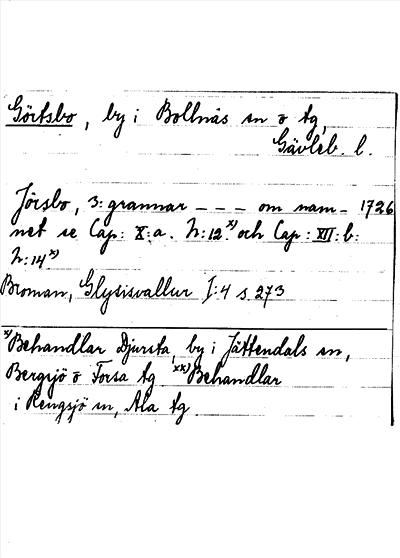 Görtsbo, by i Bollnäs sn o tg,
Gävleb. l.
Jörsbo, 3: grannar - - - om nam- 1726
net se Cap: X: a. N:12 x) och Cap: XII: b:
N:14 x)
Broman, Glysisvallur I:4 s. 273
x) Behandlar Djursta, by i Jättendals sn,
Bergsjö o Forsa tg xx) Behandlar
i Rengsjö sn, Ala tg